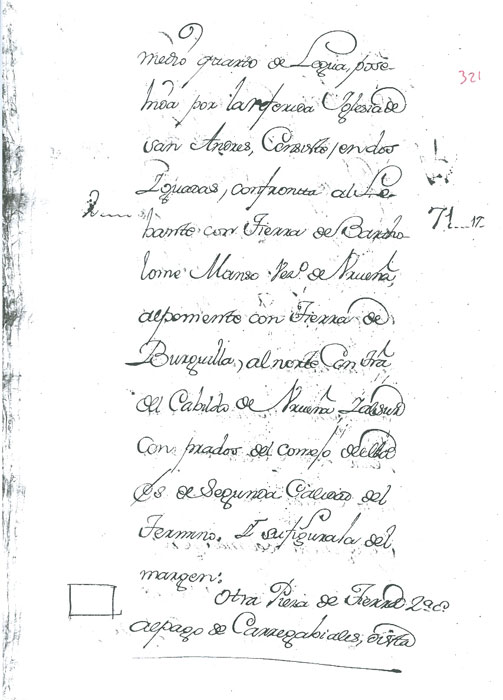 medio quarto de Legua, pose-
hida por la referida Yglesia de
san Andres, Consiste, en dos
Yguadas, confronta al Le-
2 bante con Tierra de Bartho- 71 17
lome Manso Vez.º de Nrueña,
al poniente con Tierra de
Burguilla, al norte Con trã
del Cabildo de Nrueña, Y al sur
Con prados del consejo de ella
Es de Segunda Calidad del
Termino. Y su figura la del
margen:
Otra Pieza de Tierra 2ª
al pago de Carregabiales, dista
321